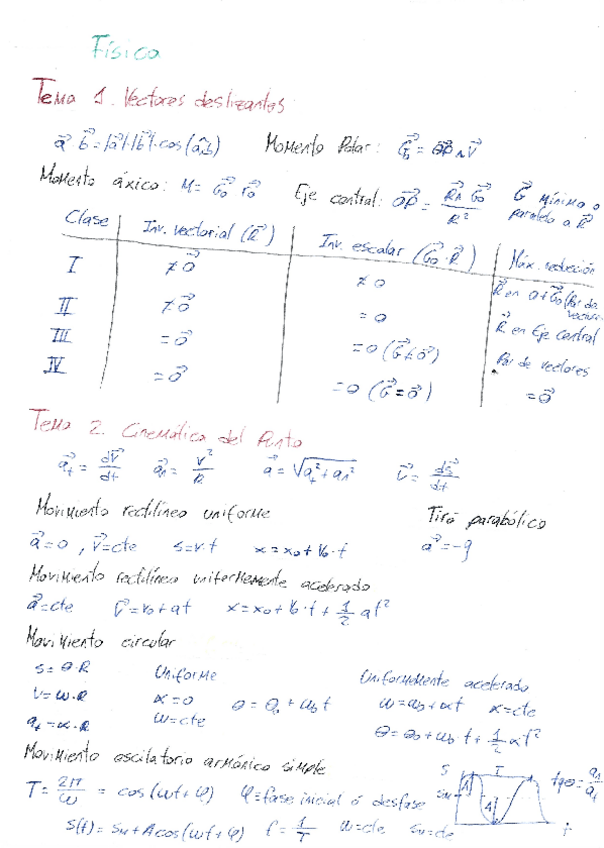 Física
Tema 1. Vectores deslizantes
a⃗ b⃗ = |a⃗|·|b⃗|·cos(a,b) Momento Polar: G⃗o = OP⃗ ∧ V⃗
Momento áxico: M = G⃗o r⃗o Eje central: OP⃗ = R⃗ ∧ G⃗o / R² G⃗ mínimo o paralelo a R⃗
Clase Inv. vectorial (R⃗) Inv. escalar (G⃗o·R⃗) Máx. reducción
I ≠ 0⃗ ≠ 0 R⃗ en O + G⃗o (Par de
II ≠ 0⃗ = 0 R⃗ en Eje central
III = 0⃗ = 0 (G⃗ ≠ 0⃗) Par de vectores
IV = 0⃗ = 0 (G⃗ = 0⃗) = 0⃗
Tema 2. Cinemática del Punto
a⃗t = dv⃗/dt a⃗n = v²/R a⃗ = √(at² + an²) v⃗ = ds⃗/dt
Movimiento rectilíneo uniforme Tiro parabólico
a⃗ = 0, v⃗ = cte s = v·t x = x₀ + v₀·t a⃗ = -g
Movimiento rectilíneo uniformemente acelerado
a⃗ = cte v⃗ = v₀ + at x = x₀ + v₀·t + 1/2 at²
Movimiento circular
s = θ·R Uniforme Uniformemente acelerado
v = ω·R α = 0 θ = θ₀ + ω₀t ω = ω₀ + αt α = cte
at = α·R ω = cte θ = θ₀ + ω₀·t + 1/2 αt²
Movimiento oscilatorio armónico simple
T = 2π/ω = cos(ωt + φ) φ = fase inicial ó desfase
s(t) = sm + A cos(ωt + φ) f = 1/T ω = cte sm = cte
S T sm A t
tgθ = an/at